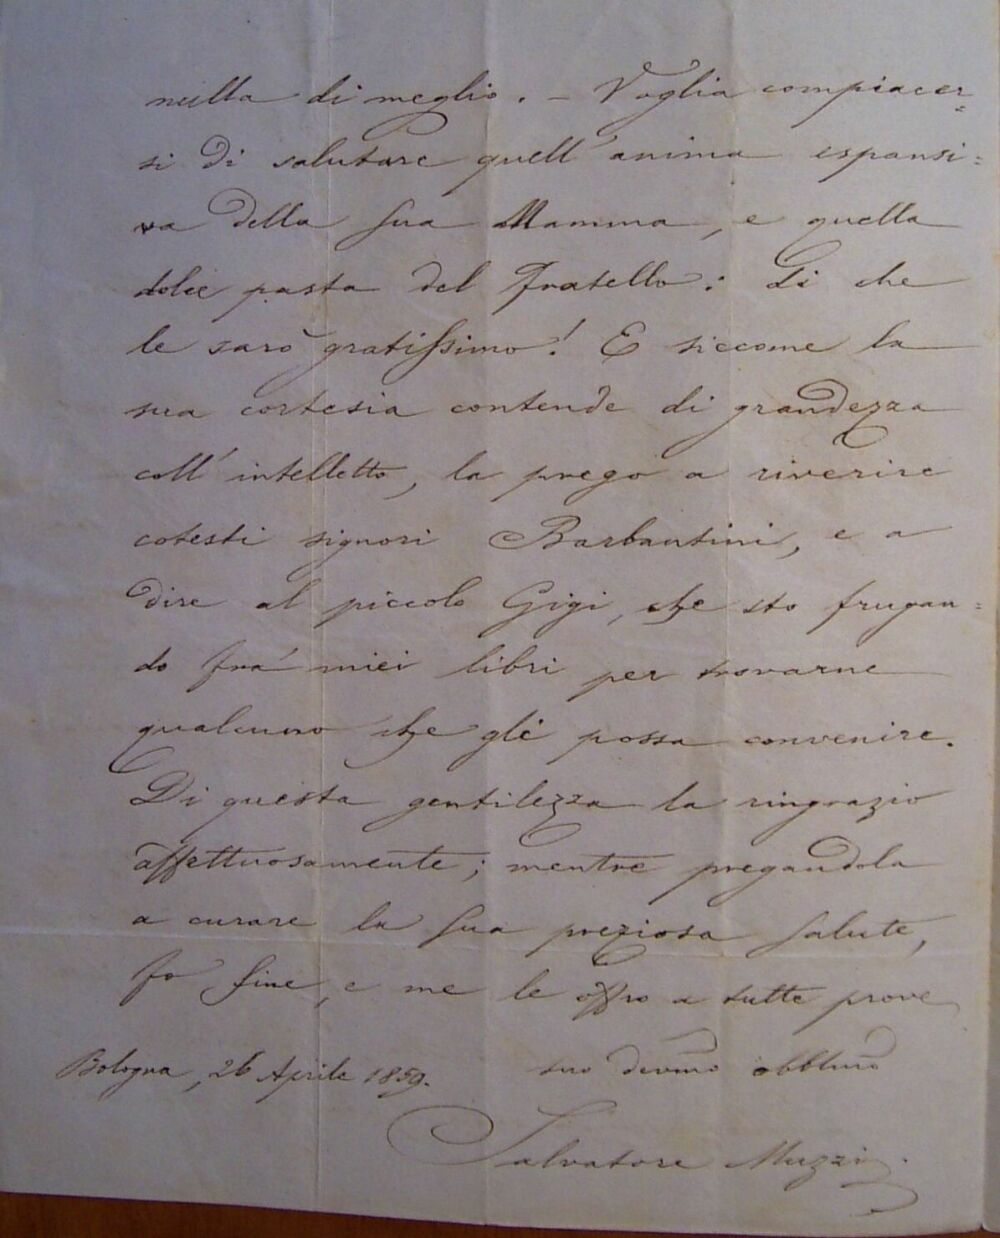 nulla di meglio. – Voglia compiacer=
si di salutare quell'anima espansi=
va della sua Mamma, e quella
dolce pasta del Fratello: Di che
le sarò gratissimo! E siccome la
sua cortesia contende di grandezza
coll'intelletto, la prego a riverire
cotesti signori Barbantini, e a
dire al piccolo Gigi, che sto frugan=
do fra' miei libri per trovarne
qualcuno che gli possa convenire.
Di questa gentilezza la ringrazio
affettuosamente; mentre pregandola
a curare la sua preziosa salute,
fo fine, e me le offro a tutte prove
suo devmo obblmo
Bologna, 26 Aprile 1859.
Salvatore Muzzi.